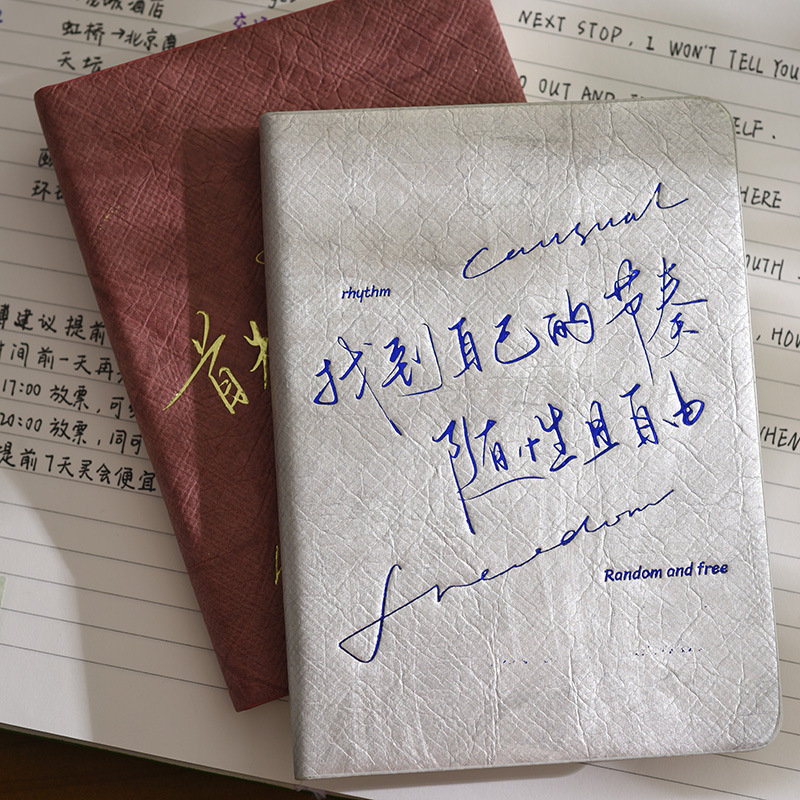 虹桥→北京南
天坛
NEXT STOP, I WON'T TELL YOU
O OUT AND
ELF.
HERE
OUTH
HOW
WHEN
建议提前
时间前一天再
17:00 放票，可
20:00 放票，同可
提前7天买会便宜
首
Caususal
rhythm
找到自己的节奏
随性且自由
freedom
Random and free